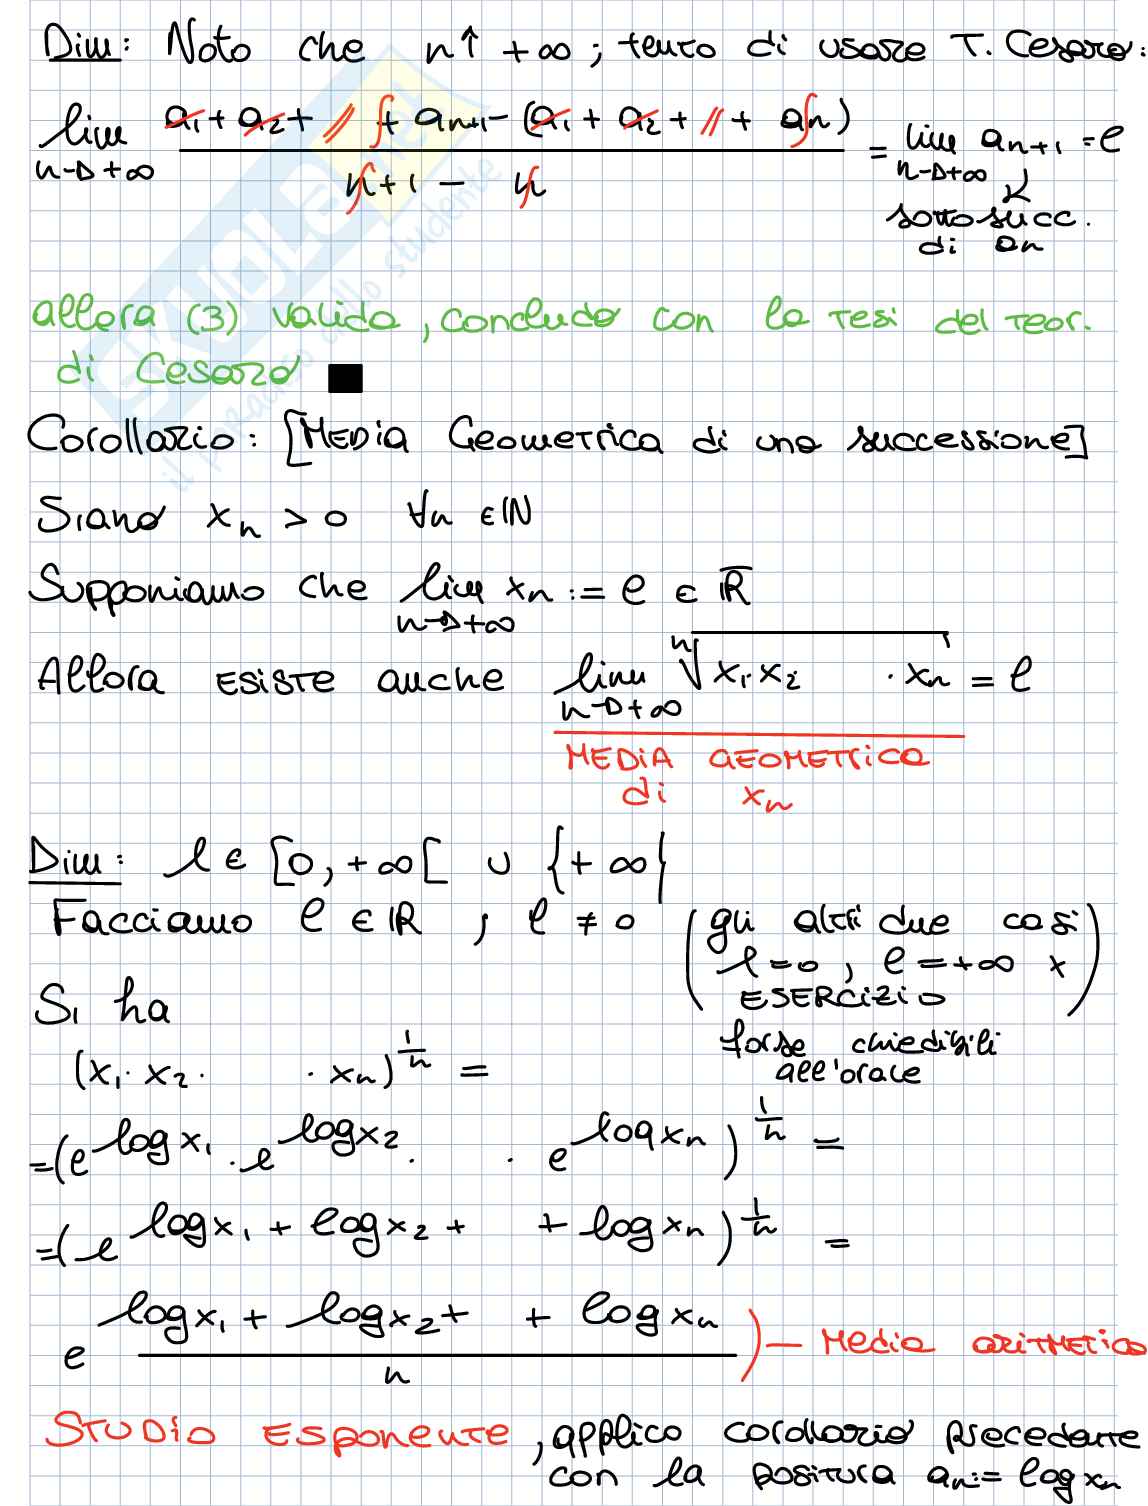 Dim: Noto che n↑ +∞ ; tento di usare T. Cesaro:
lim n→+∞ (a₁ + a₂ + // + aₙ₊₁ - (a₁ + a₂ + // + aₙ)) / (n+1 - n) = lim n→+∞ aₙ₊₁ = l
sottosucc.
di an
allora (3) valida, concludo con la tesi del teor.
di Cesaro ■
Corollario: [MEDIA Geometrica di una successione]
Siano xₙ > 0 ∀n ∈ ℕ
Supponiamo che lim n→+∞ xₙ := l ∈ ℝ̅
Allora ESISTE anche lim n→+∞ ⁿ√(x₁·x₂ ·xₙ) = l
MEDIA GEOMETRICA
di xₙ
Dim: l ∈ [0, +∞[ ∪ {+∞}
Facciamo l ∈ ℝ ; l ≠ 0 (gli altri due casi
l=0, l=+∞ x
ESERCIZIO)
forse chiedibili
all'orale
Si ha
(x₁· x₂· · xₙ)^(1/n) =
=(e^(log x₁) · e^(log x₂) · · e^(log xₙ))^(1/n) =
=(e^(log x₁ + log x₂ + + log xₙ))^(1/n) =
e^((log x₁ + log x₂ + + log xₙ)/n) ) — Media aritmetica
STUDIO ESponente, applico corollario precedente
con la positura aₙ := log xₙ
SKUOLA.net
il paradiso dello studente